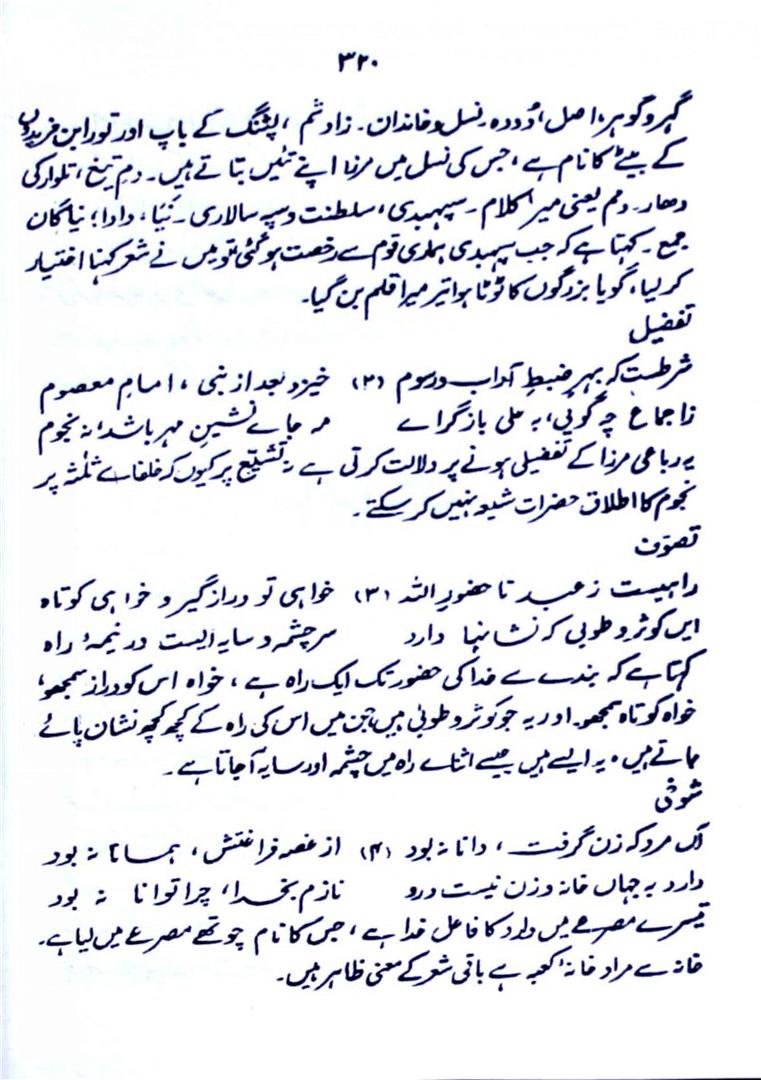 ۳۲۰
گہر و گوہر، اصل، دُودہ۔ نسل و خاندان۔ زادشم، پشنگ کے باپ اور تور ابن فریدوں
کے بیٹے کا نام ہے، جس کی نسل میں مرزا اپنے تئیں بتاتے ہیں۔ دمِ تیغ، تلوار کی
دھار۔ دمم یعنی میرا کلام۔ سپہبدی، سلطنت و سپہ سالاری۔ نَیا، دادا؛ نیاگان
جمع۔ کہتا ہے کہ جب سپہبدی ہماری قوم سے رخصت ہو گئی تو میں نے شعر کہنا اختیار
کر لیا، گویا بزرگوں کا ٹوٹا ہوا تیر میرا قلم بن گیا۔
تفضیل
شرطست کہ بہرِ ضبطِ آداب و رسوم (۲) خیزد بعد از نبی، امامِ معصوم
زاجماع چہ گویی، بہ علی بازگراے مہ جاے نشینِ مہر باشد، نہ نجوم
یہ رباعی مرزا کے تفضیلی ہونے پر دلالت کرتی ہے نہ تشیّع پر کیوں کہ خلفاے ثلٰثہ پر
نجوم کا اطلاق حضرات شیعہ نہیں کر سکتے۔
تصوّف
راہیست ز عبد تا حضورِ اللہ (۳) خواہی تو دراز گیر و خواہی کوتاہ
ایں کوثر و طوبیٰ کہ نشانہا دارد سرچشمہ و سایہ ایست در نیمۂ راہ
کہتا ہے کہ بندے سے خدا کی حضور تک ایک راہ ہے، خواہ اس کو دراز سمجھو،
خواہ کوتاہ سمجھو۔ اور یہ جو کوثر و طوبیٰ ہیں جن میں اس کی راہ کے کچھ کچھ نشان پائے
جاتے ہیں، یہ ایسے ہیں جیسے اثناے راہ میں چشمہ اور سایہ آ جاتا ہے۔
شوخی
آں مرد کہ زن گرفت، دانا نہ بود (۴) از غصہ فراغتش، ہمانا نہ بود
دارد بہ جہاں خانہ و زن نیست درو نازم بخدا، چرا توانا نہ بود
تیسرے مصرعے میں دارد کا فاعل خدا ہے، جس کا نام چوتھے مصرعے میں لیا ہے۔
خانہ سے مراد خانۂ کعبہ ہے باقی شعر کے معنی ظاہر ہیں۔